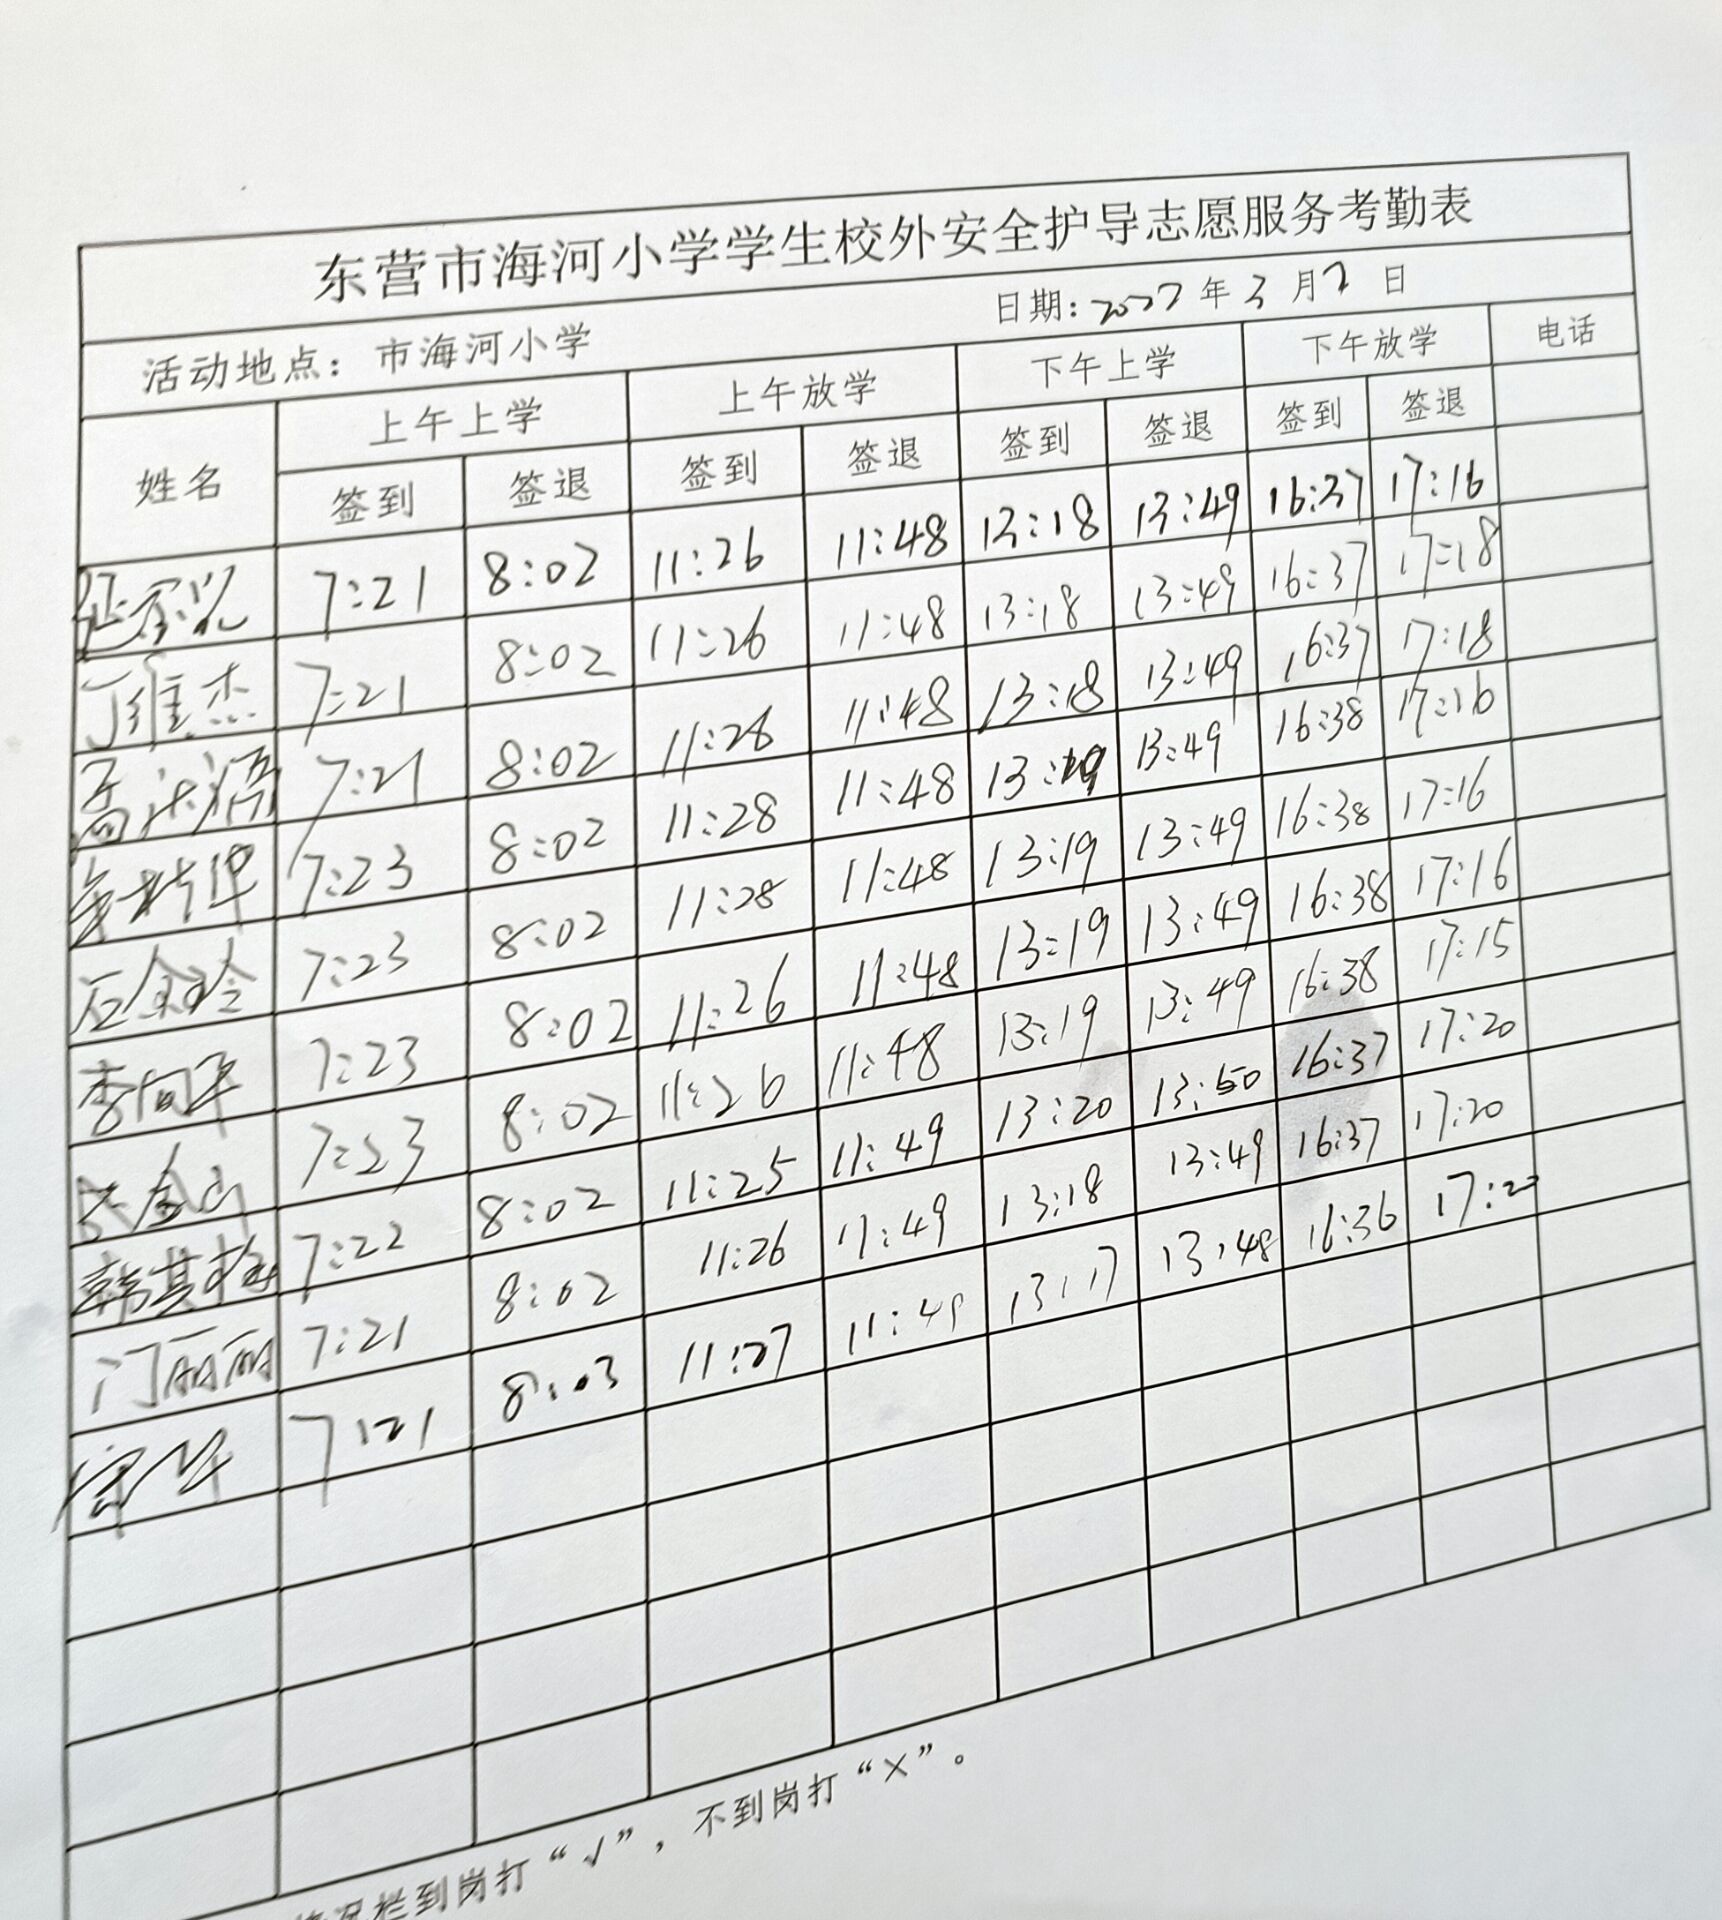 东营市海河小学学生校外安全护导志愿服务考勤表
活动地点：市海河小学 日期：2022年3月2日
姓名 上午上学 上午放学 下午上学 下午放学 电话
签到 签退 签到 签退 签到 签退 签到 签退
7:21 8:02 11:26 11:48 13:18 13:49 16:37 17:16
丁维杰 7:21 8:02 11:26 11:48 13:18 13:49 16:37 17:18
7:21 8:02 11:28 11:48 13:18 13:49 16:37 17:18
7:23 8:02 11:28 11:48 13:19 13:49 16:38 17:16
7:23 8:02 11:28 11:48 13:19 13:49 16:38 17:16
李向平 7:23 8:02 11:26 11:48 13:19 13:49 16:38 17:16
7:23 8:02 11:26 11:48 13:19 13:49 16:38 17:15
韩其梅 7:22 8:02 11:25 11:49 13:20 13:50 16:37 17:20
门丽丽 7:21 8:02 11:26 11:49 13:18 13:49 16:37 17:20
7:21 8:03 11:27 11:49 13:17 13:48 16:36 17:20
情况栏到岗打“√”，不到岗打“×”。